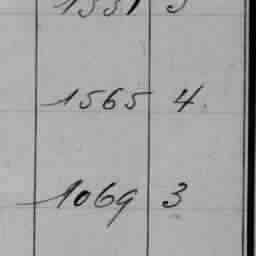 1565 4
1069 3